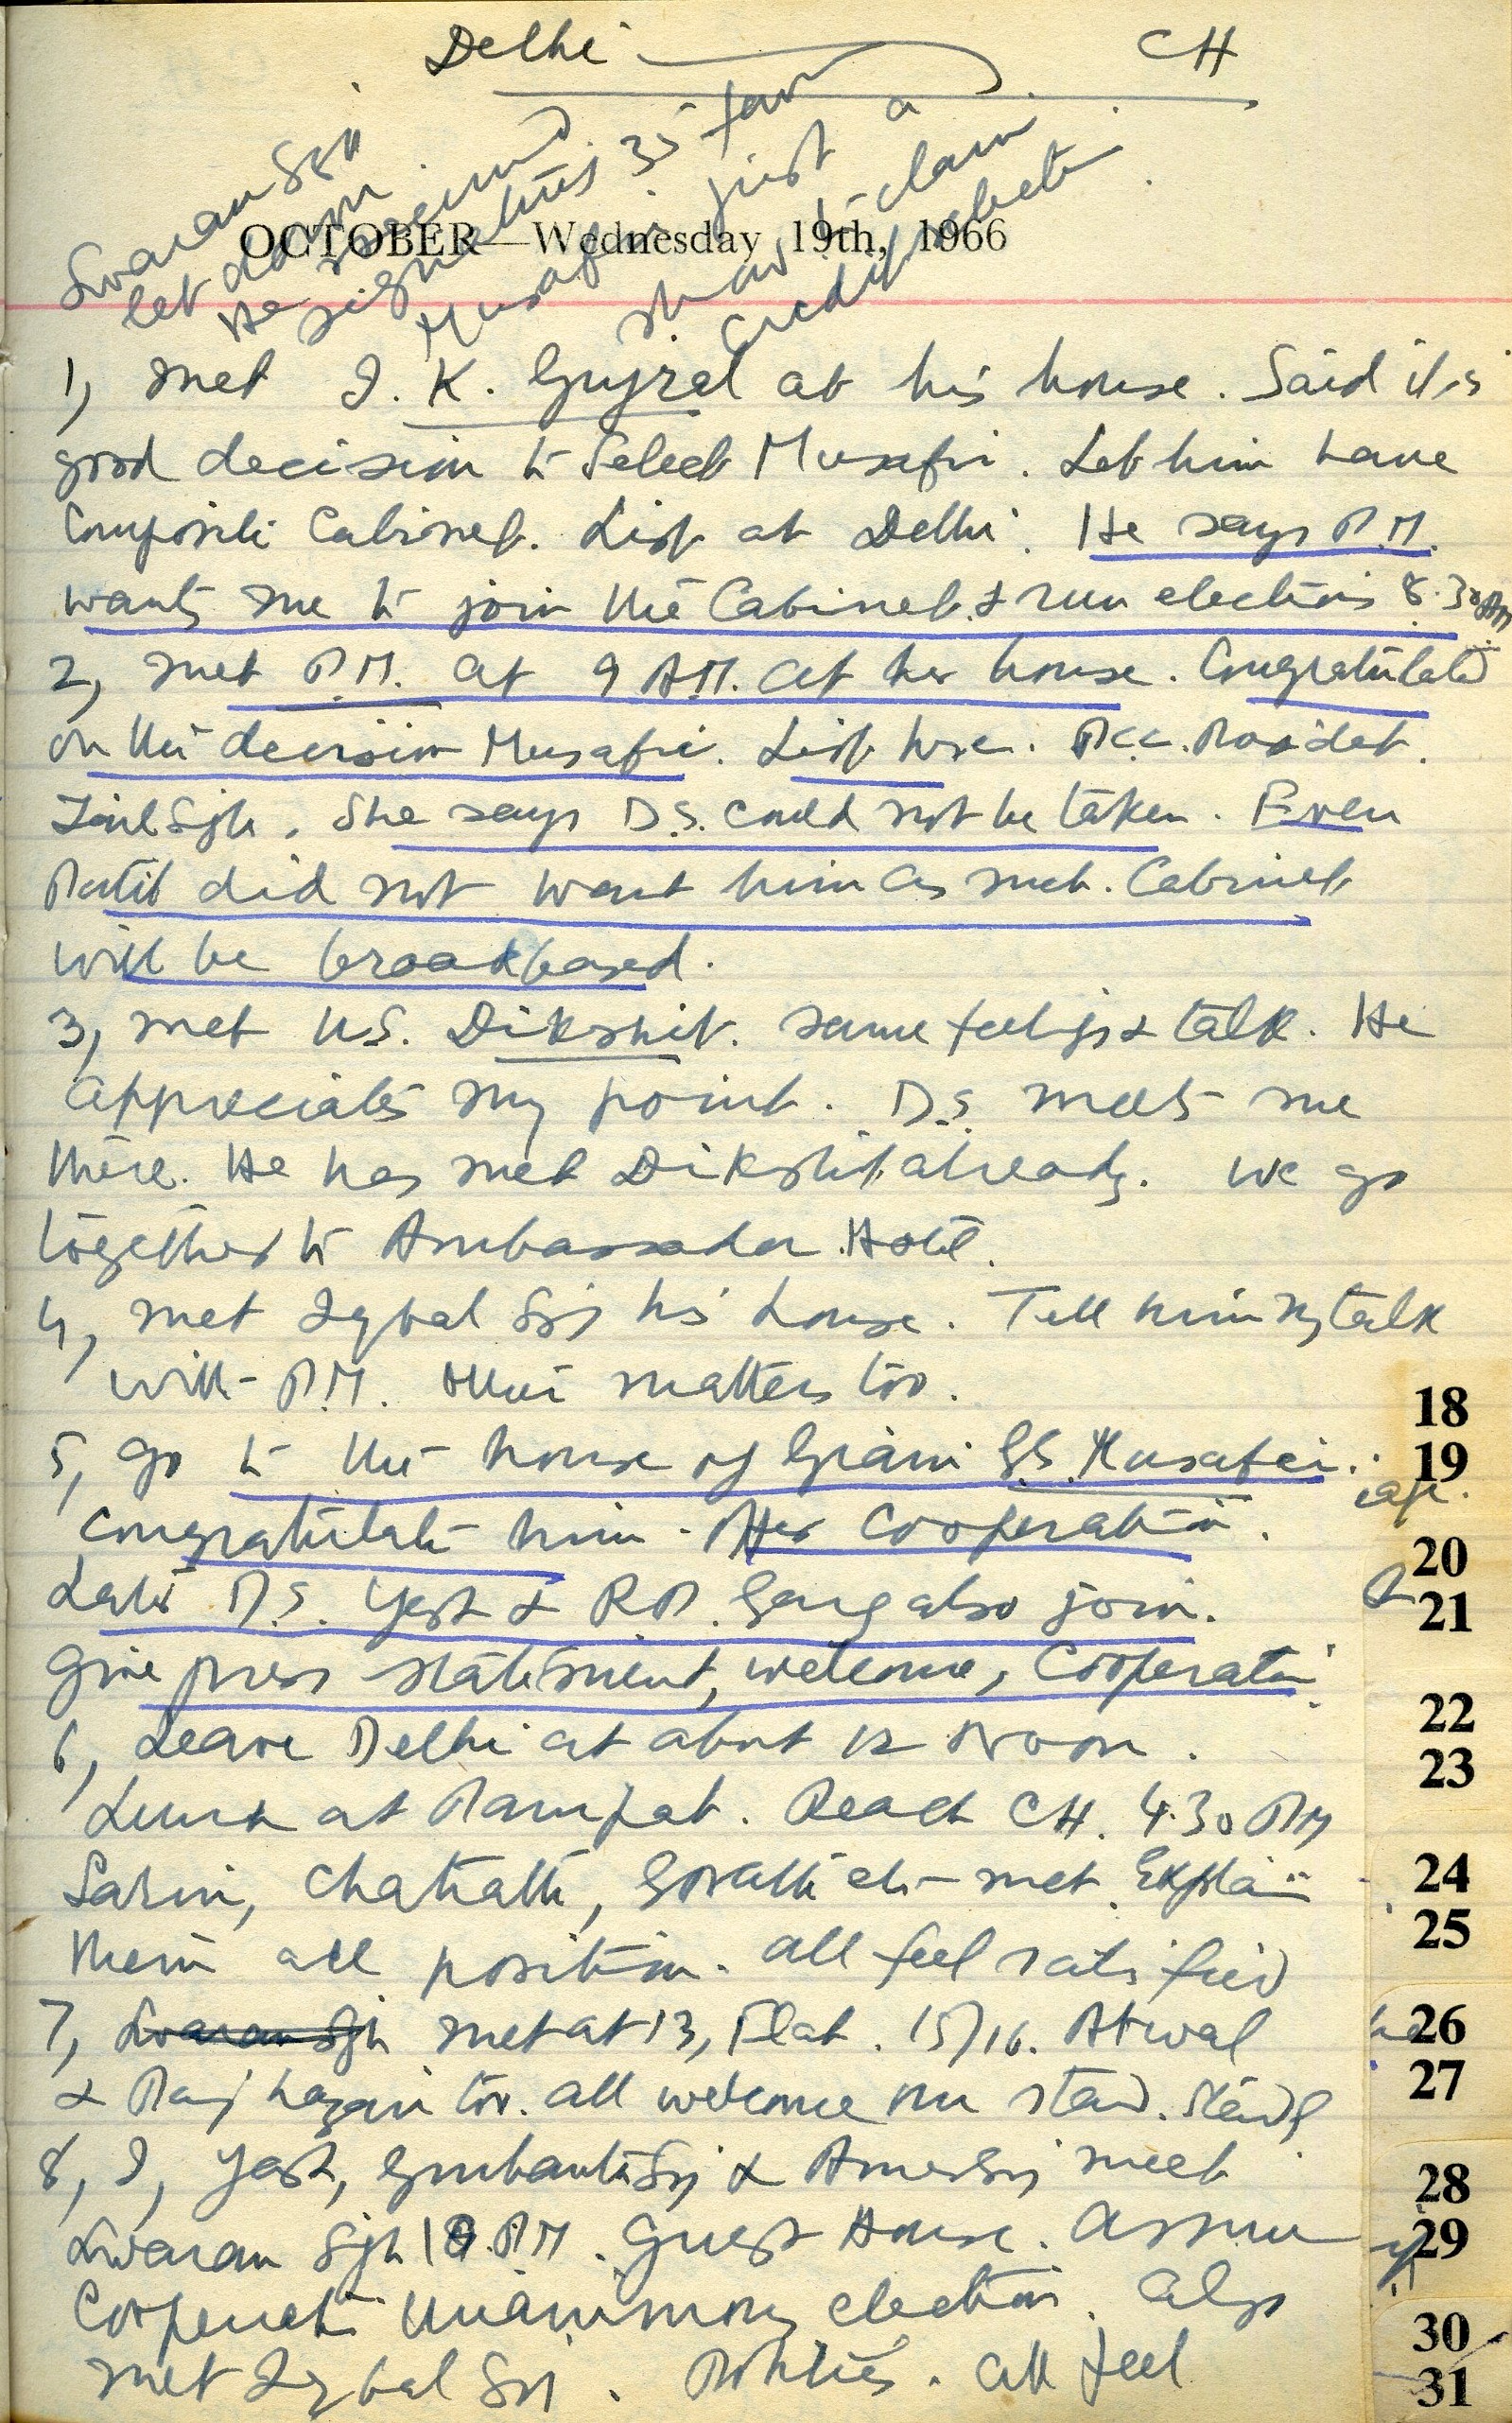 Delhi CH
Swaran Sgh
let down.
He
signatures 35 for
Musafir. just a
show & claim
credit
OCTOBER—Wednesday 19th, 1966
1, met I. K. Gujral at his house. Said it is
good decision to select Musafir. Let him have
Composite Cabinet. List at Delhi. He says P.M.
wants me to join the Cabinet & run elections 8.30 AM
2, met P.M. at 9 A.M. at her house. Congratulated
on the decision Musafir. List here. P.C.C. Presidet.
Zail Sgh. She says D.S. could not be taken. Even
Patil did not want him as such. Cabinet
will be broadbased.
3, met U.S. Dikshit. same feelings & talk. He
appreciates my point. D.S. meets me
there. He has met Dikshit already. We go
together to Ambassador Hotel.
4, met Iqbal Sgh his house. Tell him my talk
with P.M. other matters too.
5, go to the house of Giani G.S. Musafir.
Congratulate him. Offer Cooperation.
Later D.S. Yash & R.P. Garg also join.
Give press statement, welcome, Cooperation
6, Leave Delhi at about 12 Noon.
Lunch at Panipat. Reach CH. 4.30 PM
Sarin, Chatrath, etc met. Explain
them all position. all feel satisfied
7, Swaran Sgh met at 13, Flat. 15/16. Atwal
& too. all welcome our stand.
8, I, Yash, Gurbanta Sgh & Amar Sgh meet
Swaran Sgh 10 P.M. Guest House. Assure
Cooperation Unanimous election. also
met Iqbal Sgh. Politics. all feel
18
19
20
21
22
23
24
25
26
27
28
29
30
31